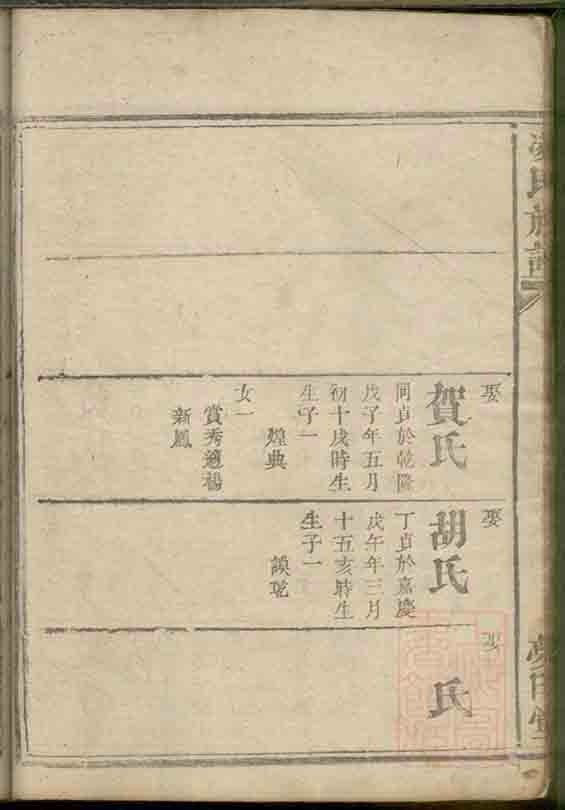 氏族譜
娶
賀氏
同貞於乾隆
戊子年五月
初十戌時生
生子一
煌典
女一
賞秀適楊
新鳳
娶
胡氏
丁貞於嘉慶
戊午年三月
十五亥時生
生子一
謨
娶
氏